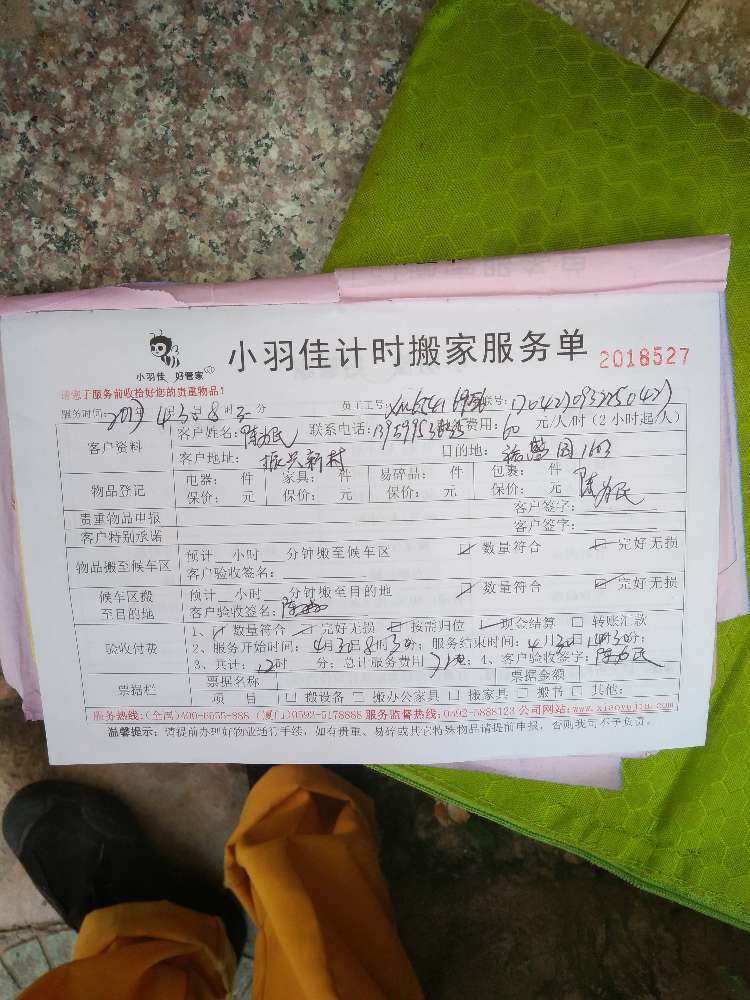 小羽佳 好管家
小羽佳计时搬家服务单 2018527
请您于服务前收拾好您的贵重物品!
服务时间: 4月30日8时30分 员工工号: 账号:
客户资料 客户姓名: 联系电话: 费用:60元/人/时(2小时起/人)
客户地址:振兴新村 目的地:
物品登记 电器: 件 家具: 件 易碎品: 件 包裹: 件
保价: 元 保价: 元 保价: 元 保价: 元
客户签字:
贵重物品申报
客户特别承诺 客户签字:
物品搬至候车区 预计 小时 分钟搬至候车区 数量符合 完好无损
客户验收签名:
候车区搬至目的地 预计 小时 分钟搬至目的地 数量符合 完好无损
客户验收签名:
验收付费 1、 数量符合 完好无损 按需归位 现金结算 转账汇款
2、服务开始时间:4月30日8时30分;服务结束时间:4月30日 时30分;
3、共计: 时 分;总计服务费用 元;4、客户验收签字:
票据栏 票据名称 票据金额
项 目 搬设备 搬办公家具 搬家具 搬书 其他:
服务热线:(全国)400-6555-888 (厦门)0592-5178888 服务监督热线:0592-5888123 公司网站:www.xiaoyujia.com
温馨提示:请提前办理好物业通行手续,如有贵重、易碎或其它特殊物品请提前申报,否则我司不予负责。